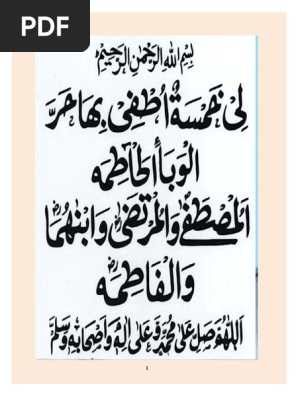 PDF
بِسْمِ اللهِ الرَّحْمٰنِ الرَّحِيْمِ
لِىْ خَمْسَةٌ اُطْفِىْ بِهَا حَرَّ
الْوَبَاءِ الْحَاطِمَه
اَلْمُصْطَفٰى وَالْمُرْتَضٰى وَابْنَهُمَا
وَالْفَاطِمَه
اَللّٰهُمَّ صَلِّ عَلٰى مُحَمَّدٍ وَّ عَلٰى اٰلِهٖ وَاَصْحَابِهٖ وَسَلِّمْ
1